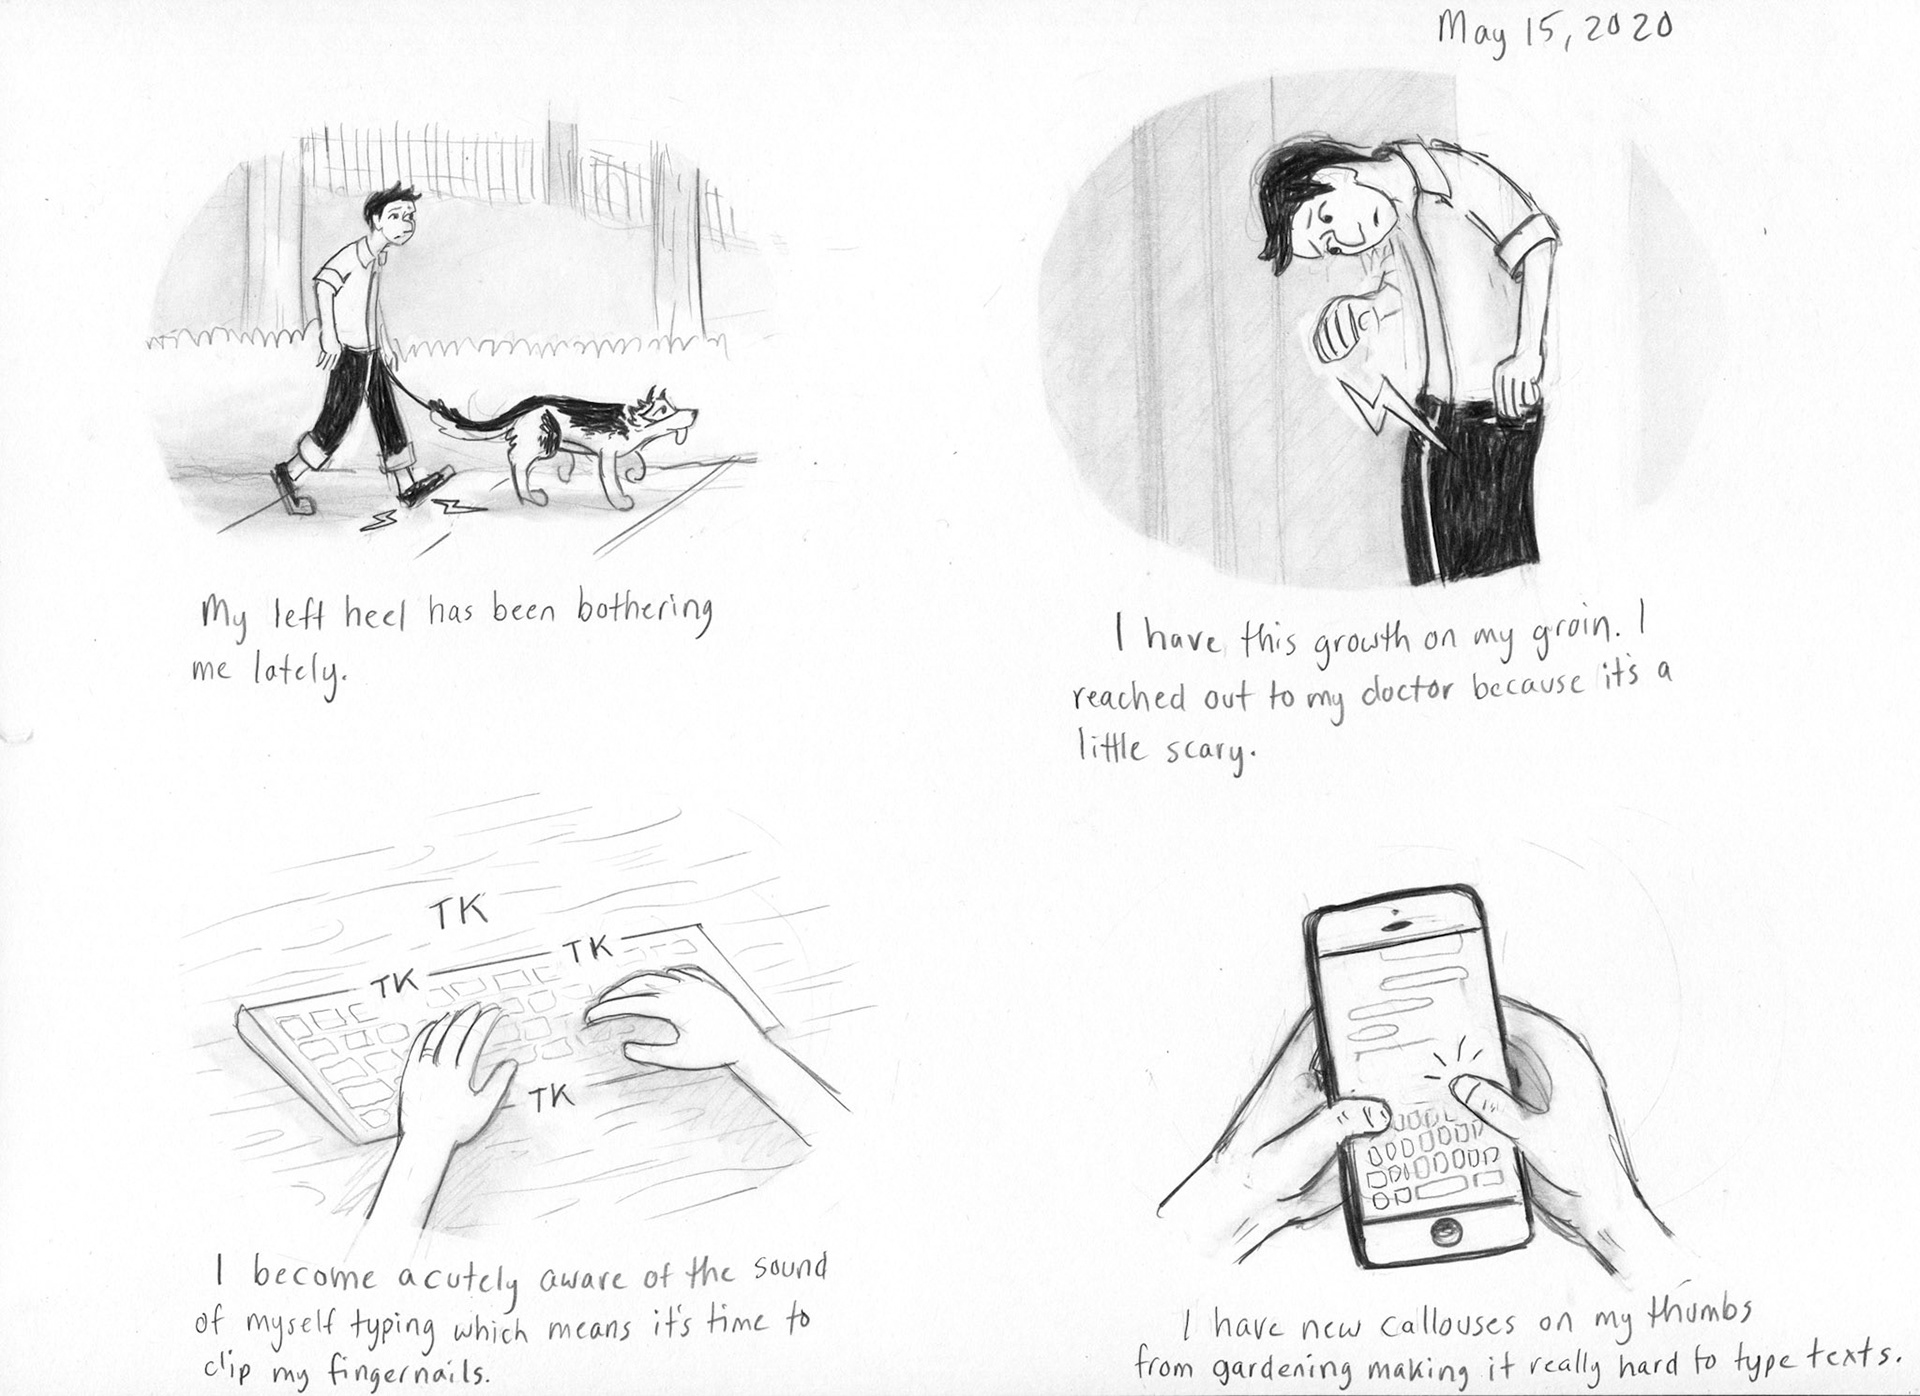 May 15, 2020
My left heel has been bothering
me lately.
I have this growth on my groin. I
reached out to my doctor because it's a
little scary.
TK
TK
TK
TK
I become acutely aware of the sound
of myself typing which means it's time to
clip my fingernails.
I have new callouses on my thumbs
from gardening making it really hard to type texts.